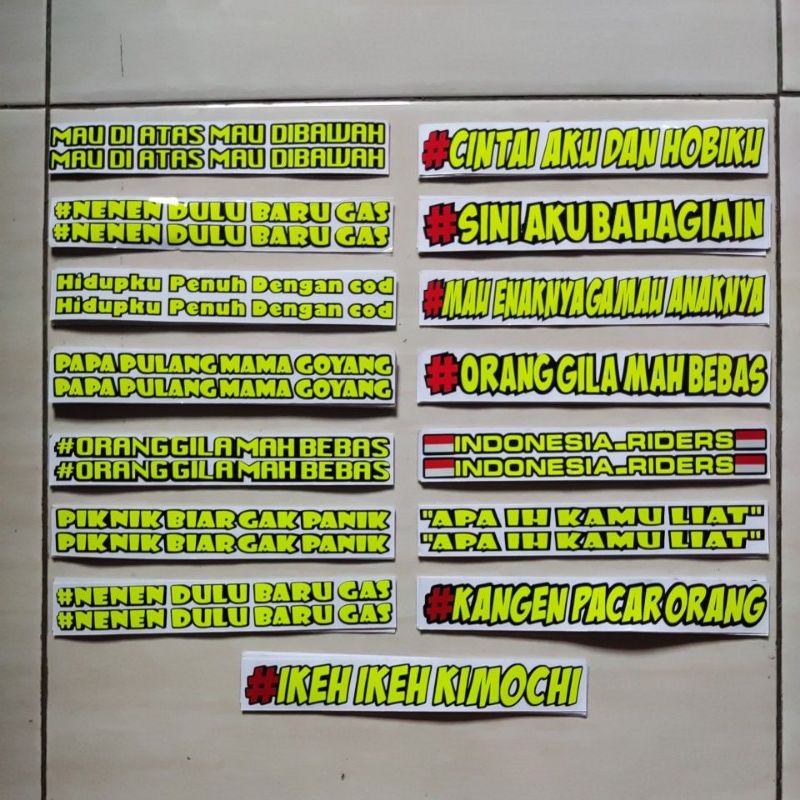 MAU DI ATAS MAU DIBAWAH
MAU DI ATAS MAU DIBAWAH
#NENEN DULU BARU GAS
#NENEN DULU BARU GAS
Hidupku Penuh Dengan cod
Hidupku Penuh Dengan cod
PAPA PULANG MAMA GOYANG
PAPA PULANG MAMA GOYANG
#ORANG GILA MAH BEBAS
#ORANG GILA MAH BEBAS
PIKNIK BIAR GAK PANIK
PIKNIK BIAR GAK PANIK
#NENEN DULU BARU GAS
#NENEN DULU BARU GAS
#CINTAI AKU DAN HOBIKU
#SINI AKU BAHAGIAIN
#MAU ENAKNYA GA MAU ANAKNYA
#ORANG GILA MAH BEBAS
INDONESIA_RIDERS
INDONESIA_RIDERS
"APA IH KAMU LIAT"
"APA IH KAMU LIAT"
#KANGEN PACAR ORANG
#IKEH IKEH KIMOCHI